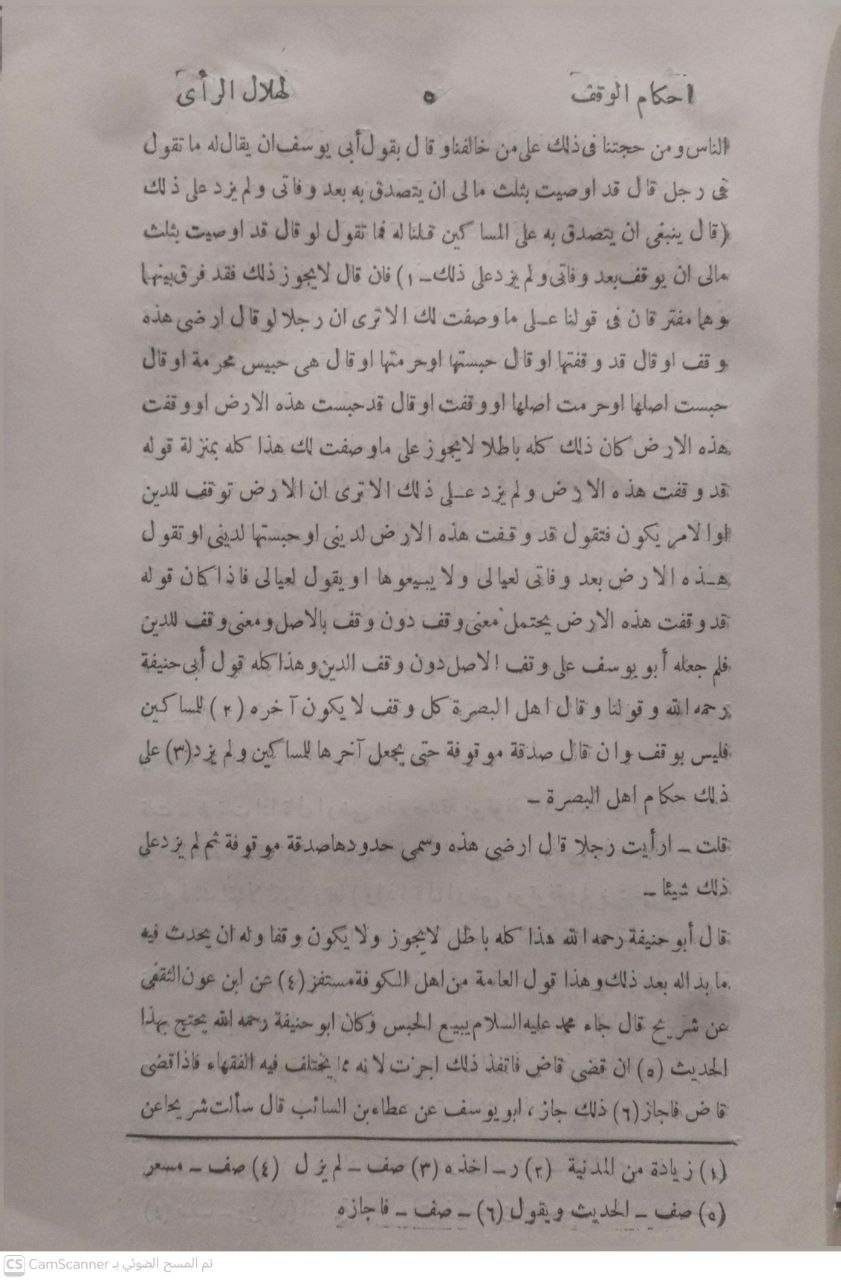 احكام الوقف ٥ لهلال الرأى
الناس ومن حجتنا فى ذلك على من خالفنا وقال بقول أبى يوسف ان يقال له ما تقول
فى رجل قال قد اوصيت بثلث مالى ان يتصدق به بعد وفاتى ولم يزد على ذلك
(قال ينبغى ان يتصدق به على المساكين قلنا له فما تقول لو قال قد اوصيت بثلث
مالى ان يوقف بعد وفاتى ولم يزد على ذلك ـ ١) فان قال لا يجوز ذلك فقد فرق بينهما
وهما مفترقان فى قولنا على ما وصفت لك الا ترى ان رجلا لو قال ارضى هذه
وقف او قال قد وقفتها او قال حبستها او حرمتها او قال هى حبيس محرمة او قال
حبست اصلها او حرمت اصلها او وقفت او قال قد حبست هذه الارض او وقفت
هذه الارض كان ذلك كله باطلا لا يجوز على ما وصفت لك هذا كله بمنزلة قوله
قد وقفت هذه الارض ولم يزد على ذلك الا ترى ان الارض توقف للدين
او الامر يكون فتقول قد وقفت هذه الارض لدينى او حبستها لدينى او تقول
هذه الارض بعد وفاتى لعيالى ولا يبيعوها او يقول لعيالى فاذا كان قوله
قد وقفت هذه الارض يحتمل معنى وقف دون وقف بالاصل ومعنى وقف للدين
فلم جعله أبو يوسف على وقف الاصل دون وقف الدين وهذا كله قول أبى حنيفة
رحمه الله وقولنا وقال اهل البصرة كل وقف لا يكون آخره (٢) للمساكين
فليس بوقف وان قال صدقة موقوفة حتى يجعل آخرها للمساكين ولم يزد (٣) على
ذلك حكام اهل البصرة ـ
قلت ـ ارأيت رجلا قال ارضى هذه وسمى حدودها صدقة موقوفة ثم لم يزد على
ذلك شيئا ـ
قال أبو حنيفة رحمه الله هذا كله باطل لا يجوز ولا يكون وقفا وله ان يحدث فيه
ما بدا له بعد ذلك وهذا قول العامة من اهل الكوفة مستفز (٤) عن ابن عون الثقفى
عن شريح قال جاء محمد عليه السلام يبيع الحبس وكان ابو حنيفة رحمه الله يحتج بهذا
الحديث (٥) ان قضى قاض فانفذ ذلك اجزت لانه مما يختلف فيه الفقهاء فاذا قضى
قاض فاجاز (٦) ذلك جاز ، ابو يوسف عن عطاء بن السائب قال سألت شريحا عن
(١) زيادة من المدنية (٢) ر ـ اخذه (٣) صف ـ لم يزل (٤) صف ـ مسعر
(٥) صف ـ الحديث ويقول (٦) ـ صف ـ فاجازه
CS CamScanner تم المسح الضوئي بـ